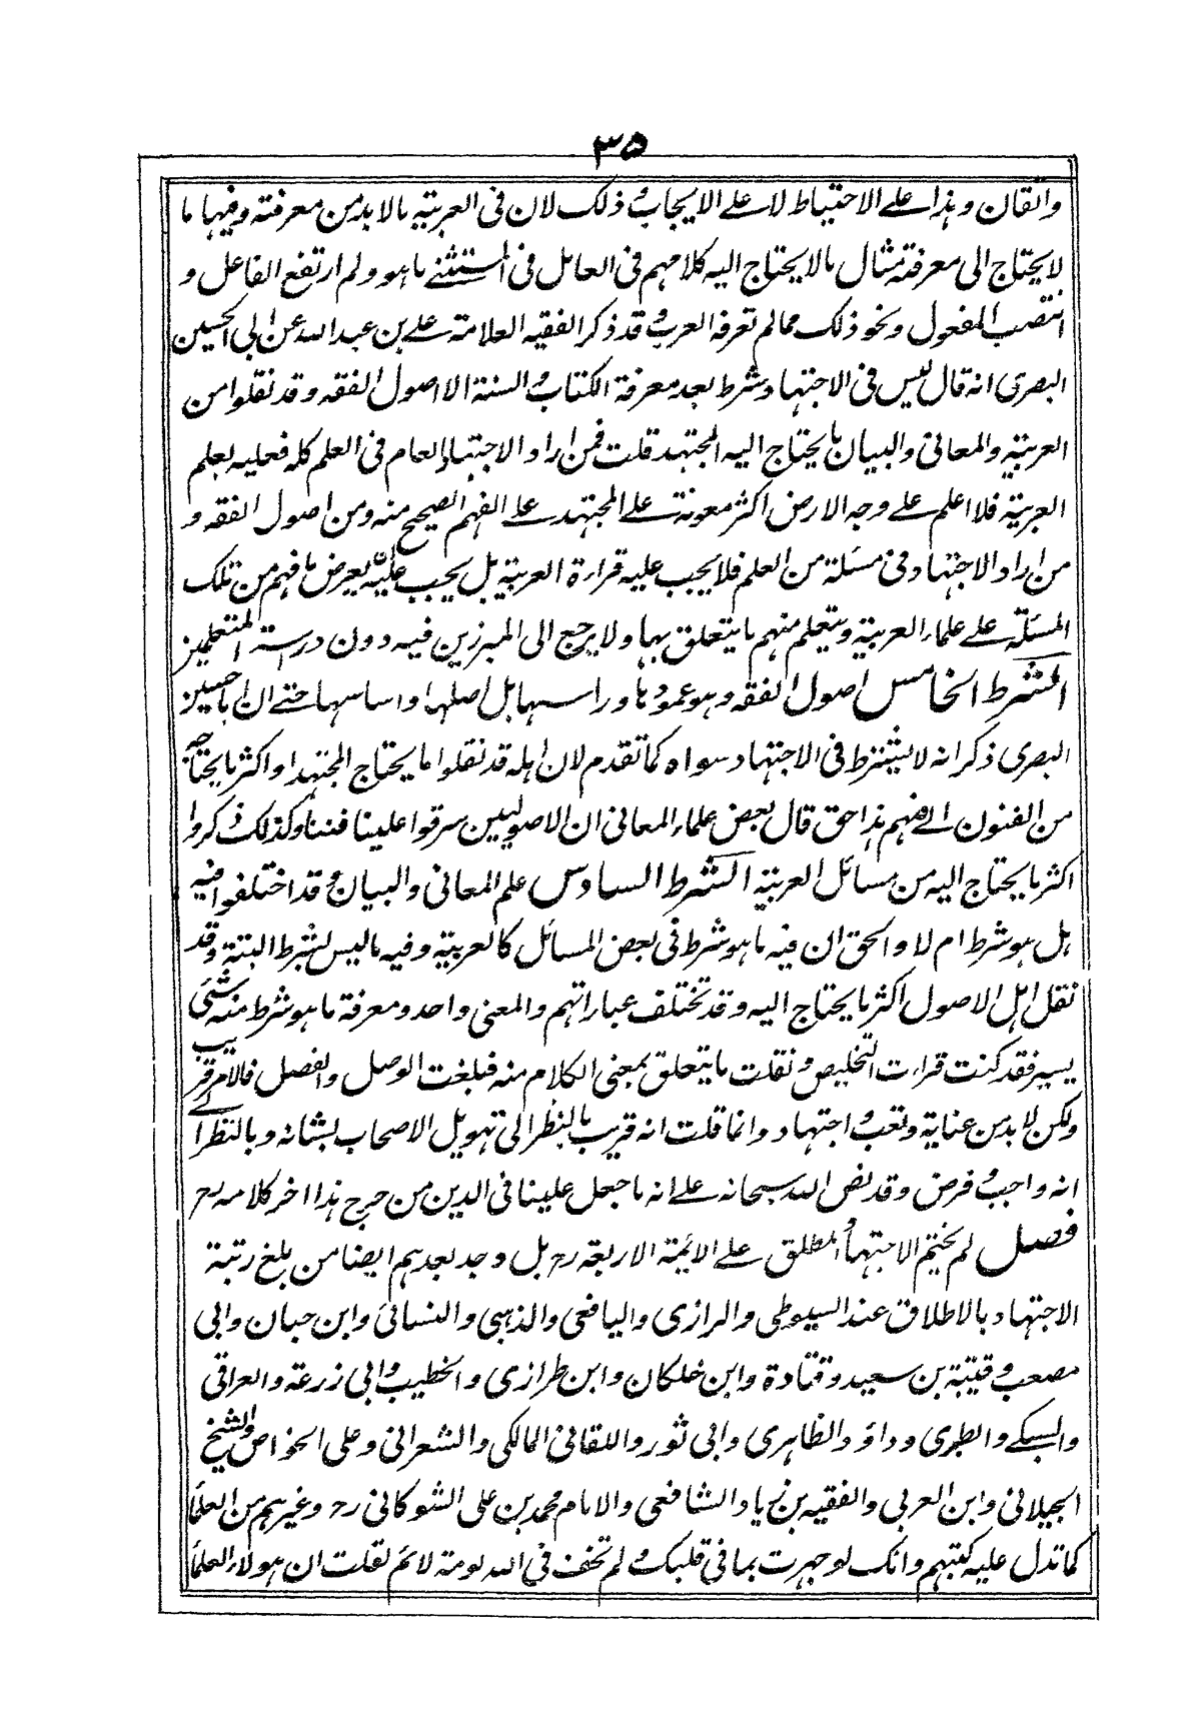 ٣٥
واتقان وهذا على الاحتياط لا على الايجاب ذلك لان فى العربية مالا بد من معرفته وفيها ما
لا يحتاج الى معرفة مثال مالا يحتاج اليه كلامهم فى العامل فى المستثنى ما هو ولم ارتفع الفاعل و
انتصب المفعول ونحو ذلك مما لم تعرفه العرب وقد ذكر الفقيه العلامة على بن عبد الله عن ابى الحسين
البصرى انه قال ليس فى الاجتهاد شرط بعد معرفة الكتاب والسنة الا اصول الفقه وقد نقلوا من
العربية والمعانى والبيان ما يحتاج اليه المجتهد قلت فمن اراد الاجتهاد العام فى العلم كله فعليه بعلم
العربية فلا اعلم على وجه الارض اكثر معونة على المجتهد على الفهم الصحيح منه ومن اصول الفقه و
من اراد الاجتهاد فى مسئلة من العلم فلا يجب عليه قراءة العربية بل يجب عليه ان يعرض ما فهم من تلك
المسئلة على علماء العربية ويتعلم منهم ما يتعلق بها ولا يرجع الى المبرزين فيه دون درسة المتعلمين
الشرط الخامس اصول الفقه وهو عمودها وراسها بل اصلها واساسها حتى ان ابا حسين
البصرى ذكر انه لا يشترط فى الاجتهاد سواه كما تقدم لان اهله قد نقلوا ما يحتاج المجتهد او اكثر ما يحتاجه
من الفنون الى فنهم هذا حق قال بعض علماء المعانى ان الاصوليين سرقوا علينا فننا وكذلك ذكروا
اكثر ما يحتاج اليه من مسائل العربية الشرط السادس علم المعانى والبيان وقد اختلفوا فيه
هل هو شرط ام لا والحق ان فيه ما هو شرط فى بعض المسائل كالعربية وفيه ما ليس بشرط البتة وقد
نقل اهل الاصول اكثر ما يحتاج اليه وقد تختلف عباراتهم والمعنى واحد ومعرفة ما هو شرط منه شئى
يسير فقد كنت قراءت التخليص ونقلت ما يتعلق بمعنى الكلام منه فبلغت الوصل والفصل فالامر قريب
ولكن لابد من عناية وتعب واجتهاد وانما قلت انه قريب بالنظر الى تهويل الاصحاب لشانه وبالنظر الى
انه واجب وفرض وقد نص الله سبحانه على انه ما جعل علينا فى الدين من حرج هذا اخر كلامه رح
فصل لم يختم الاجتهاد المطلق على الائمة الاربعة رح بل وجد بعدهم ايضا من بلغ رتبة
الاجتهاد بالاطلاق عند السيوطى والرازى واليافعى والذهبى والنسائى وابن حبان وابى
مصعب وقتيبة بن سعيد وقتادة وابن خلكان وابن طرازى والخطيب وابى زرعة والعراقى
والسبكى والطبرى وداؤد والظاهرى وابى ثور واللقانى المالكى والشعرانى وعلى الخواص والشيخ
الجيلانى وابن العربى والفقيه بن زياد الشافعى والامام محمد بن على الشوكانى رح وغيرهم من العلما
كما تدل عليه كتبهم وانك لو جهرت بما فى قلبك ولم تخف فى الله لومة لائم لقلت ان هولاء العلما